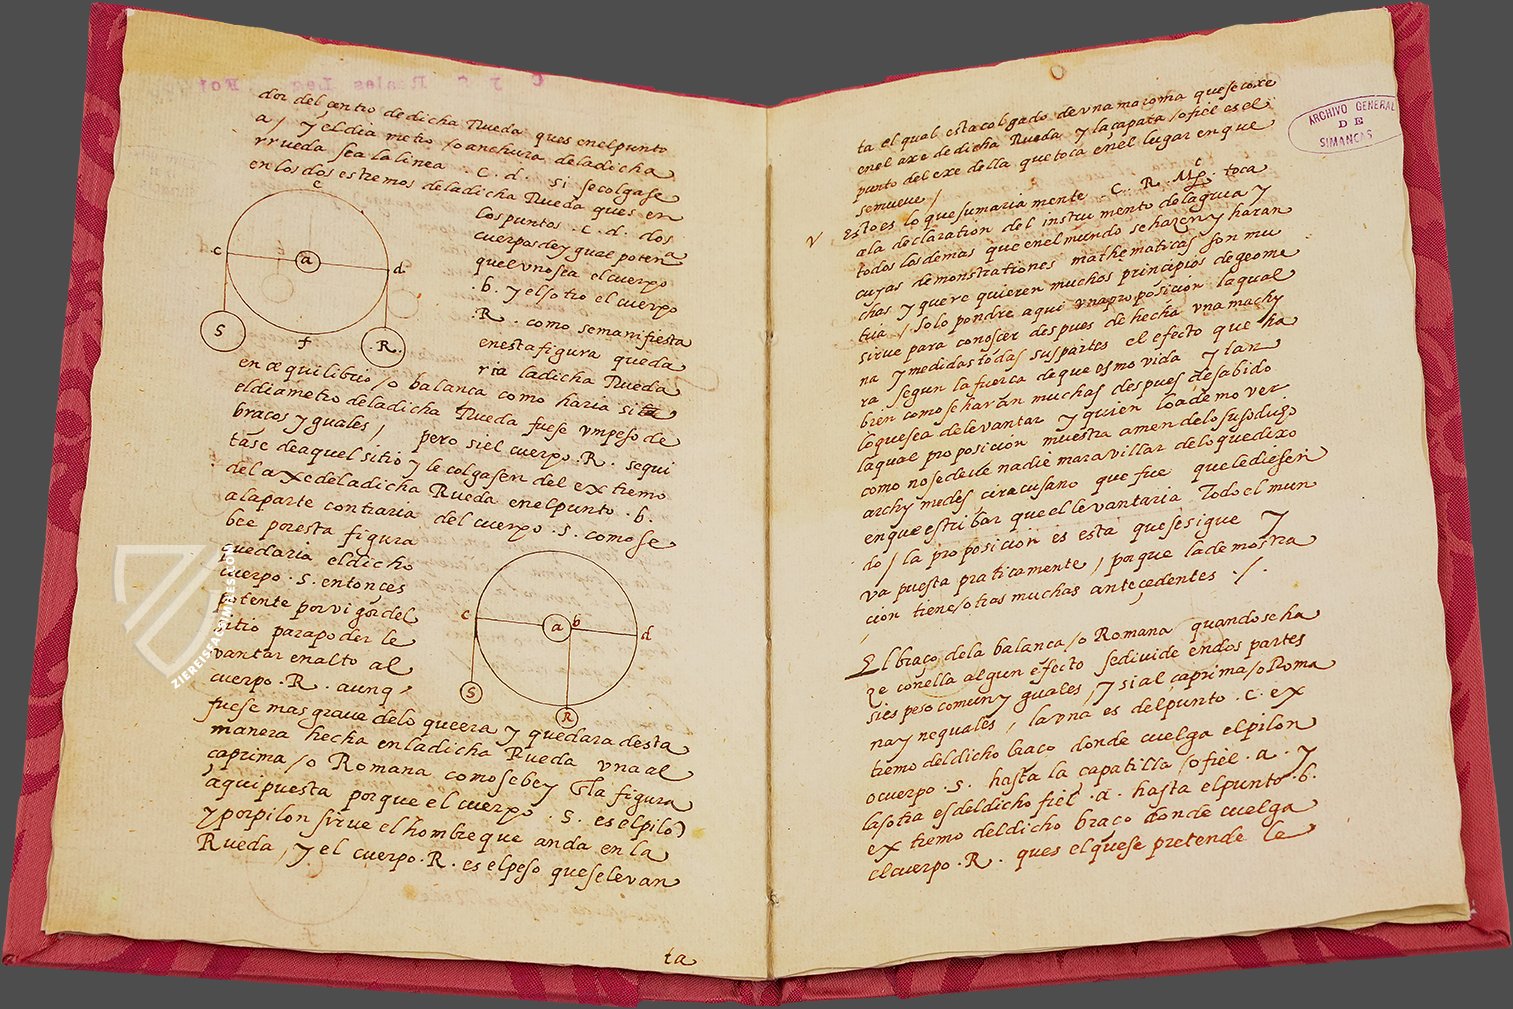 dor del çentro de dicha Rueda ques en el punto
a / y el dia metro / o anchura de la dicha
rrueda sea la linea . C . d . si se colgase
en los dos estremos de la dicha Rueda ques en
los puntos . c . d . dos
cuerpos de ygual potenª
quel vno sea el cuerpo
. b . y el sotro el cuerpo
. R . como se manifiesta
en esta figura queda
ria la dicha Rueda
c
c
a
e
d
S
f
.R.
en equilibrio / o balança como haria si
el diametro de la dicha Rueda fuese vm peso de
braços yguales / pero si el cuerpo . R . se qui
tase de aquel sitio y le colgasen del extremo
del axe de la dicha Rueda en el punto . b .
a la parte contraria del cuerpo . S . como se
bee por esta figura
quedaria el dicho
cuerpo . S . entonçes
potente por vigor del
sitio para poder le
vantar en alto al
cuerpo . R . aunq
c
a
b
d
S
R
fuese mas graue de lo que era y quedara desta
manera hecha en la dicha Rueda vna al
caprima / o Romana como se bey en la figura
aqui puesta porque el cuerpo . S . es el pilo
y por pilon sirue el hombre que anda en la
Rueda , y el cuerpo . R . es el peso que se leuan
ta
ARCHIVO GENERAL
DE
SIMANCAS
ta el qual esta colgado de vna maroma que se coxe
en el axe de dicha Rueda y la capata / o fiel es el
punto del exe della que toca en el lugar en que
se mueue /
Esto es lo que sumaria mente C. R. Mg. toca
a la declaration del instru mento del agua y
todos los demas que en el mundo se haren y haran
cuyas demonstrationes mathematicas son mu
chas y que re quieren muchos principios de geome
tria / solo pondre aqui vna proposicion la qual
sirue para conoscer despues de hecha vna machy
na y medidas todas sus partes el efecto que ha
ra segun la fuerça de que es mo vida y tan
bien como se haran muchas despues de sabido
lo que sea de leuantar y quien lo a de mo ver
la qual proposicion muestra amen de lo suso dicho
como no se deue nadie marauillar de lo que dixo
archymedes ciracusano que fue que le diesen
en que estribar que el leuantaria Todo el mun
do / la proposicion es esta que se sigue y
va puesta praticamente / porque la demostra
cion tiene / otras muchas anteçedentes . / .
El braço de la balança / o Romana quando se ha
ze con ella algun efecto se divide en dos partes
si es peso comun yguales , y si al caprima / o Roma
na ynequales / la vna es del punto . c . ex
tremo del dicho braço donde cuelga el pilon
o cuerpo . S . hasta la capatilla / o fiel . a . y
la sotra es del dicho fiel . a . hasta el punto . b .
extremo del dicho braço donde cuelga
el cuerpo . R . ques el que se pretende le
ZIEREIS FACSIMILES.COM